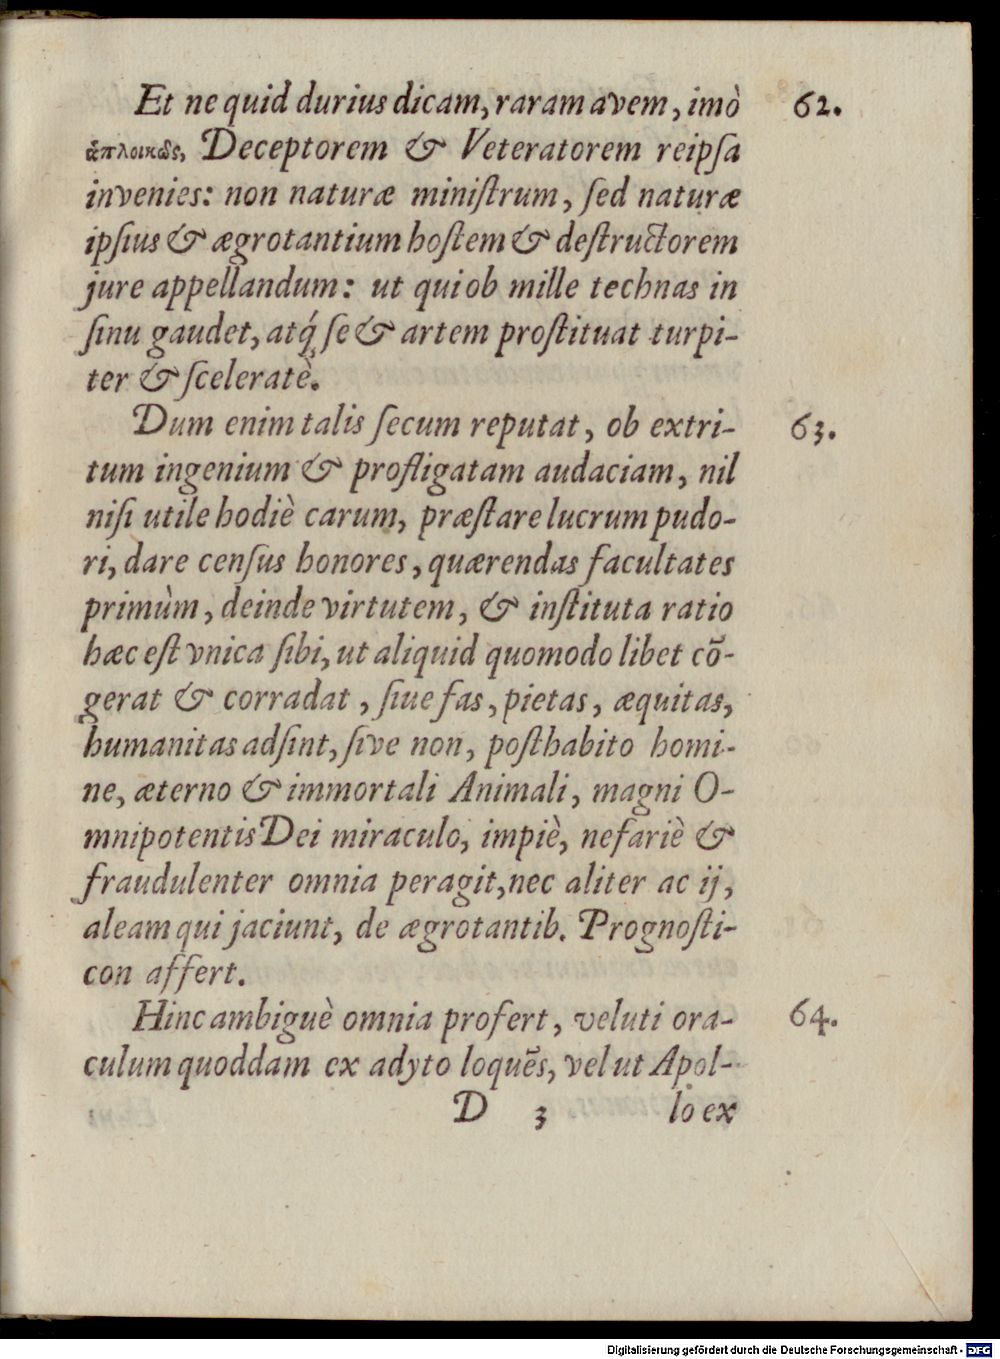 Et ne quid durius dicam, raram avem, imò 62.
ἁπλοικῶς, Deceptorem & Veteratorem reipſa
invenies: non naturæ miniſtrum, ſed naturæ
ipſius & ægrotantium hoſtem & deſtructorem
jure appellandum: ut qui ob mille technas in
ſinu gaudet, atq́; ſe & artem proſtituat turpi-
ter & ſceleratè.
Dum enim talis ſecum reputat, ob extri- 63.
tum ingenium & profligatam audaciam, nil
niſi utile hodiè carum, præſtare lucrum pudo-
ri, dare cenſus honores, quærendas facultates
primùm, deinde virtutem, & inſtituta ratio
hæc eſt vnica ſibi, ut aliquid quomodo libet cō-
gerat & corradat, ſiue fas, pietas, æquitas,
humanitas adſint, ſive non, poſthabito homi-
ne, æterno & immortali Animali, magni O-
mnipotentis Dei miraculo, impiè, nefariè &
fraudulenter omnia peragit, nec aliter ac ij,
aleam qui jaciunt, de ægrotantib. Prognoſti-
con affert.
Hinc ambiguè omnia profert, veluti ora- 64.
culum quoddam ex adyto loquẽs, vel ut Apol-
D 3 lo ex
Digitalisierung gefördert durch die Deutsche Forschungsgemeinschaft - DFG